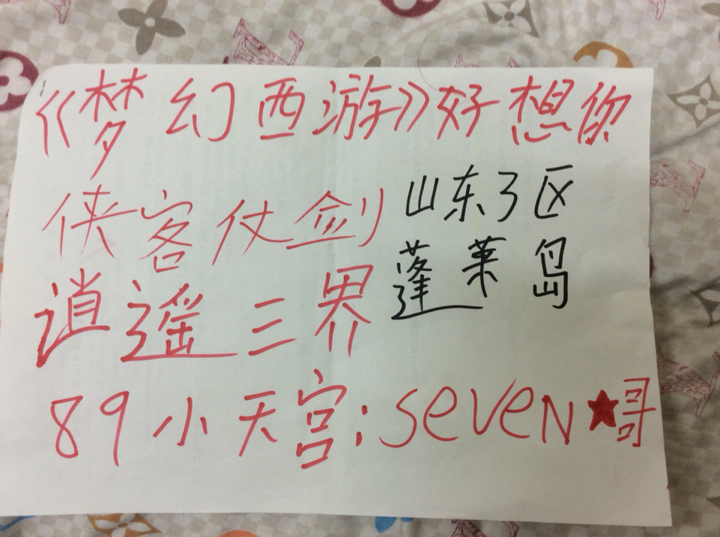 《梦幻西游》好想你
侠客仗剑
山东3区
逍遥三界
蓬莱岛
89小天宫:seveN★哥